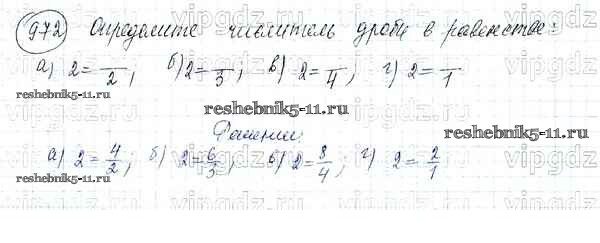 972) Определите числитель дроби в равенстве:
а) 2=—/2; б) 2=—/3; в) 2=—/4; г) 2=—/1
reshebnik5-11.ru
reshebnik5-11.ru
Решение:
reshebnik5-11.ru
а) 2=4/2; б) 2=6/3; в) 2=8/4; г) 2=2/1
reshebnik5-11.ru
vipgdz